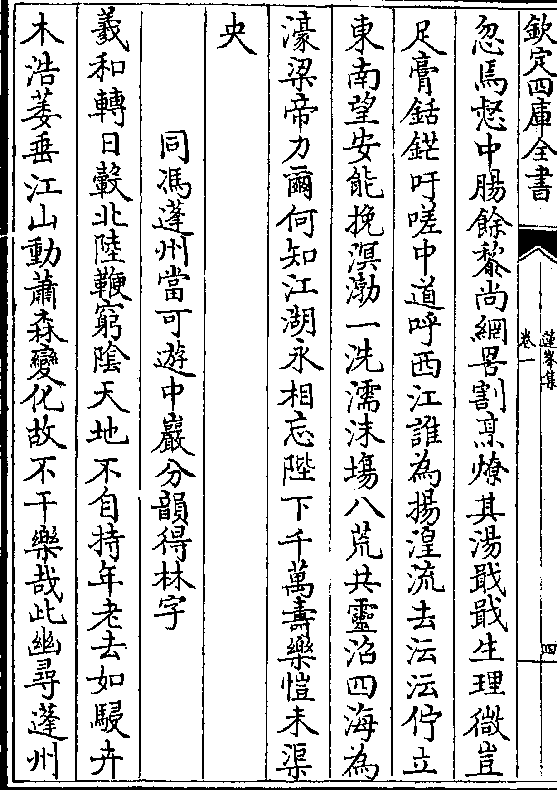 欽定四庫全書
蓮峯集
卷一
四
忽焉惄中腸餘黎尚網罟割烹燎其湯戢戢生理微豈
足膏銛鋩吁嗟中道呼西江誰為揚湟流去沄沄佇立
東南望安能挽溟渤一洗濡沫塲八荒共靈沼四海為
濠梁帝力爾何知江湖永相忘陛下千萬壽樂愷未渠
央
同馮蓬州當可遊中巖分韻得林字
羲和轉日轂北陸鞭窮陰天地不自持年老去如駸卉
木浩萎垂江山動蕭森變化故不干樂哉此幽尋蓬州